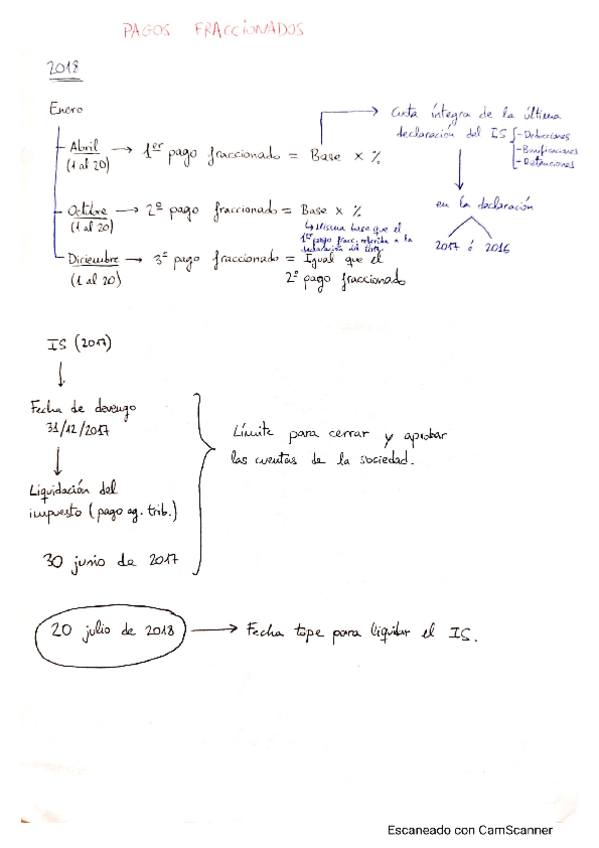 PAGOS FRACCIONADOS
2018
Enero
Abril → 1er pago fraccionado = Base × %
(1 al 20)
Cuota íntegra de la última
declaración del IS - Deducciones
- Bonificaciones
- Retenciones
en la declaración
2017 ó 2016
Octubre → 2º pago fraccionado = Base × %
(1 al 20)
↳ Misma base que el
1er pago fracc. referida a la
declaración del
Diciembre → 3º pago fraccionado = Igual que el
(1 al 20) 2º pago fraccionado
IS (2017)
Fecha de devengo
31/12/2017
Liquidación del
impuesto (pago ag. trib.)
30 junio de 2017
Límite para cerrar y aprobar
las cuentas de la sociedad.
20 julio de 2018 → Fecha tope para liquidar el IS.
Escaneado con CamScanner